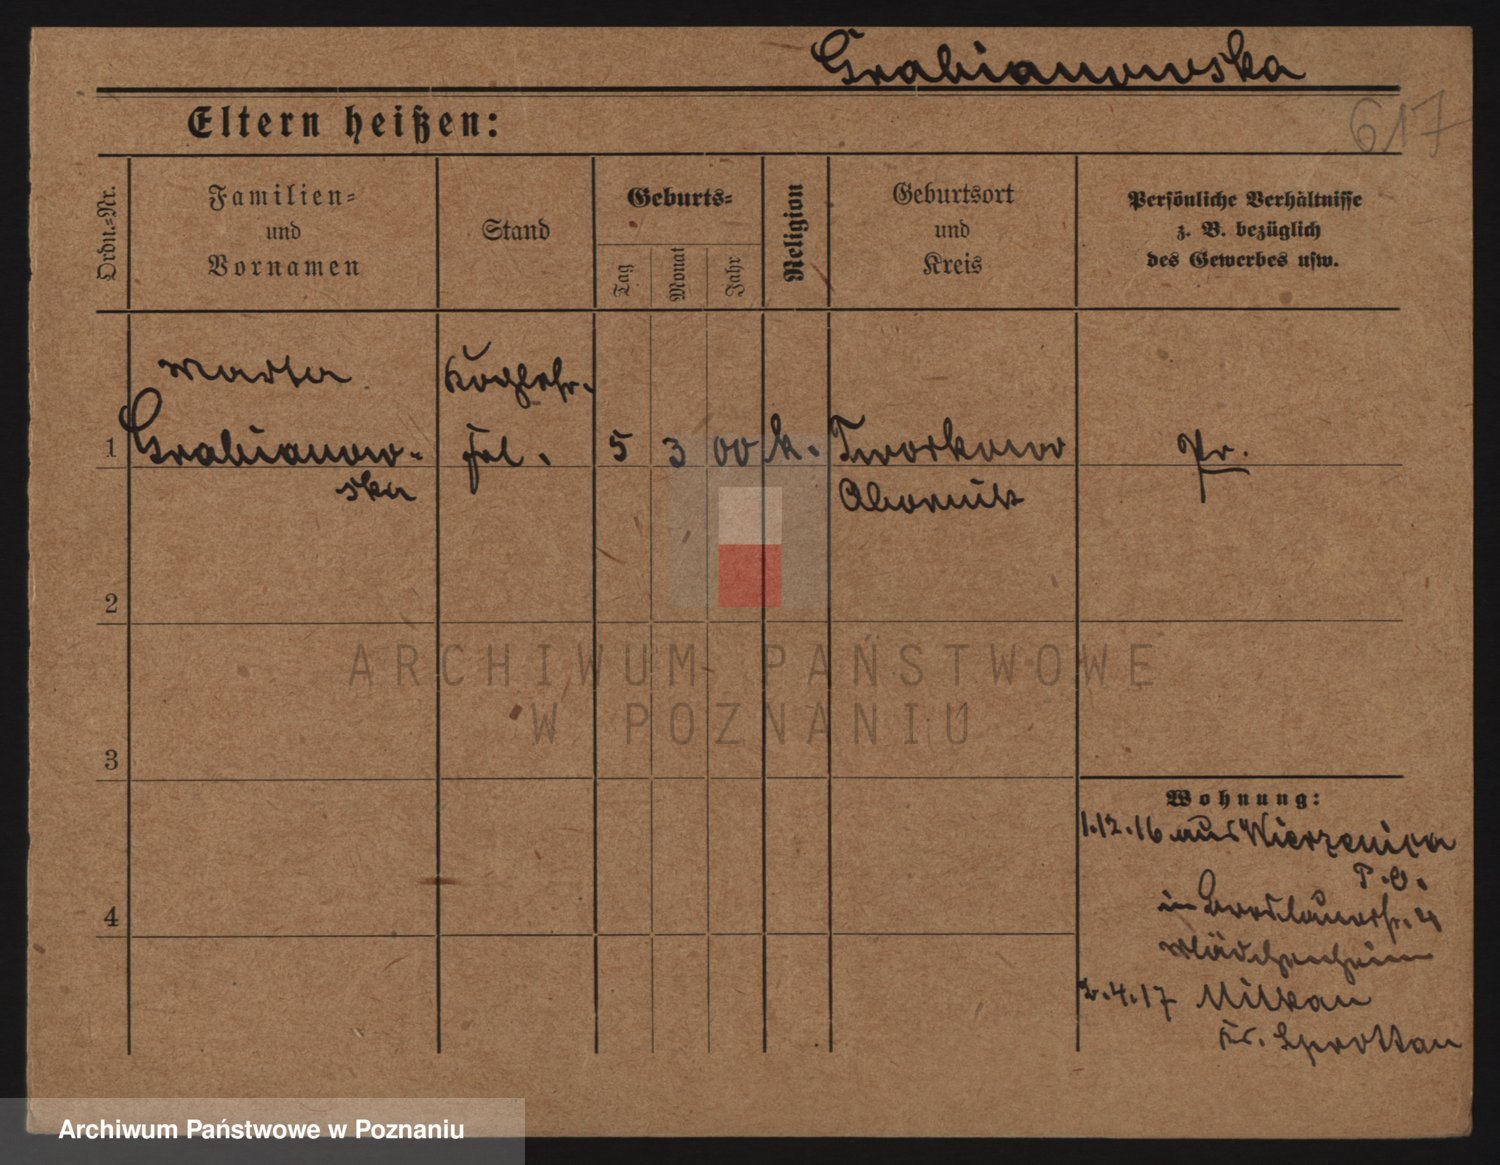 Grabianowska
617
Eltern heißen:
Ordn.=Nr.
Familien=
und
Vornamen
Stand
Geburts=
Tag
Monat
Jahr
Religion
Geburtsort
und
Kreis
Persönliche Verhältnisse
z. B. bezüglich
des Gewerbes usw.
Marta
1 Grabianow- frl. 5 3 00 k. Tworkowo Pr.
ska Obornik
2
3
4
Wohnung:
1.12.16 aus Wierzenica
P.O.
in Breslauerstr.
Mädchenheim
2.4.17 Milkau
Kr. Sprottau
ARCHIWUM PAŃSTWOWE
W POZNANIU
Archiwum Państwowe w Poznaniu